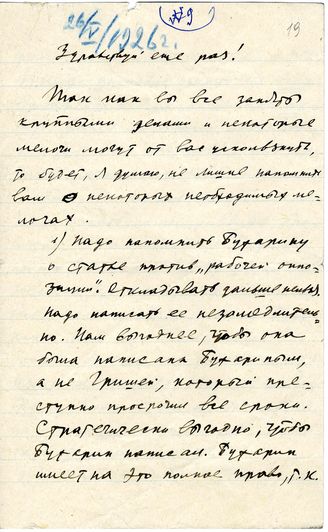 26/V/1926г.
19
Здравствуй еще раз!
Так как вы все заняты
крупными делами и некоторые
мелочи могут от вас ускользнуть,
то будет, я думаю, не лишне напомнить
вам о некоторых необходимых ме-
лочах.
1) Надо напомнить Бухарину
о статье против „рабочей оппо-
зиции". Откладывать дальше нельзя,
надо написать ее незамедлитель-
но. Нам выгоднее, чтобы она
была написана Бухариным,
а не Гришей, который пре-
ступно просрочил все сроки.
Стратегически выгодно, чтобы
Бухарин написал. Бухарин
имеет на это полное право, т.к.